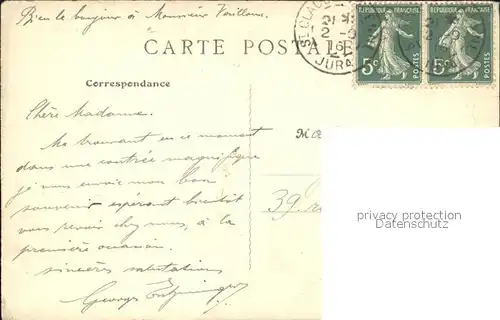 Bien le bonjour à Monsieur
CARTE POSTALE
ST CLAUDE
JURA
REPUBLIQUE FRANÇAISE
5c POSTES
REPUBLIQUE FRANÇAISE
5c POSTES
Correspondance
Chère Madame.
Me trouvant en ce moment
dans une contrée magnifique
je vous envoie mon bon
souvenir espérant bientôt
vous revoir chez nous, à la
première occasion.
sincères salutations
Georges
39. r
privacy protection
Datenschutz